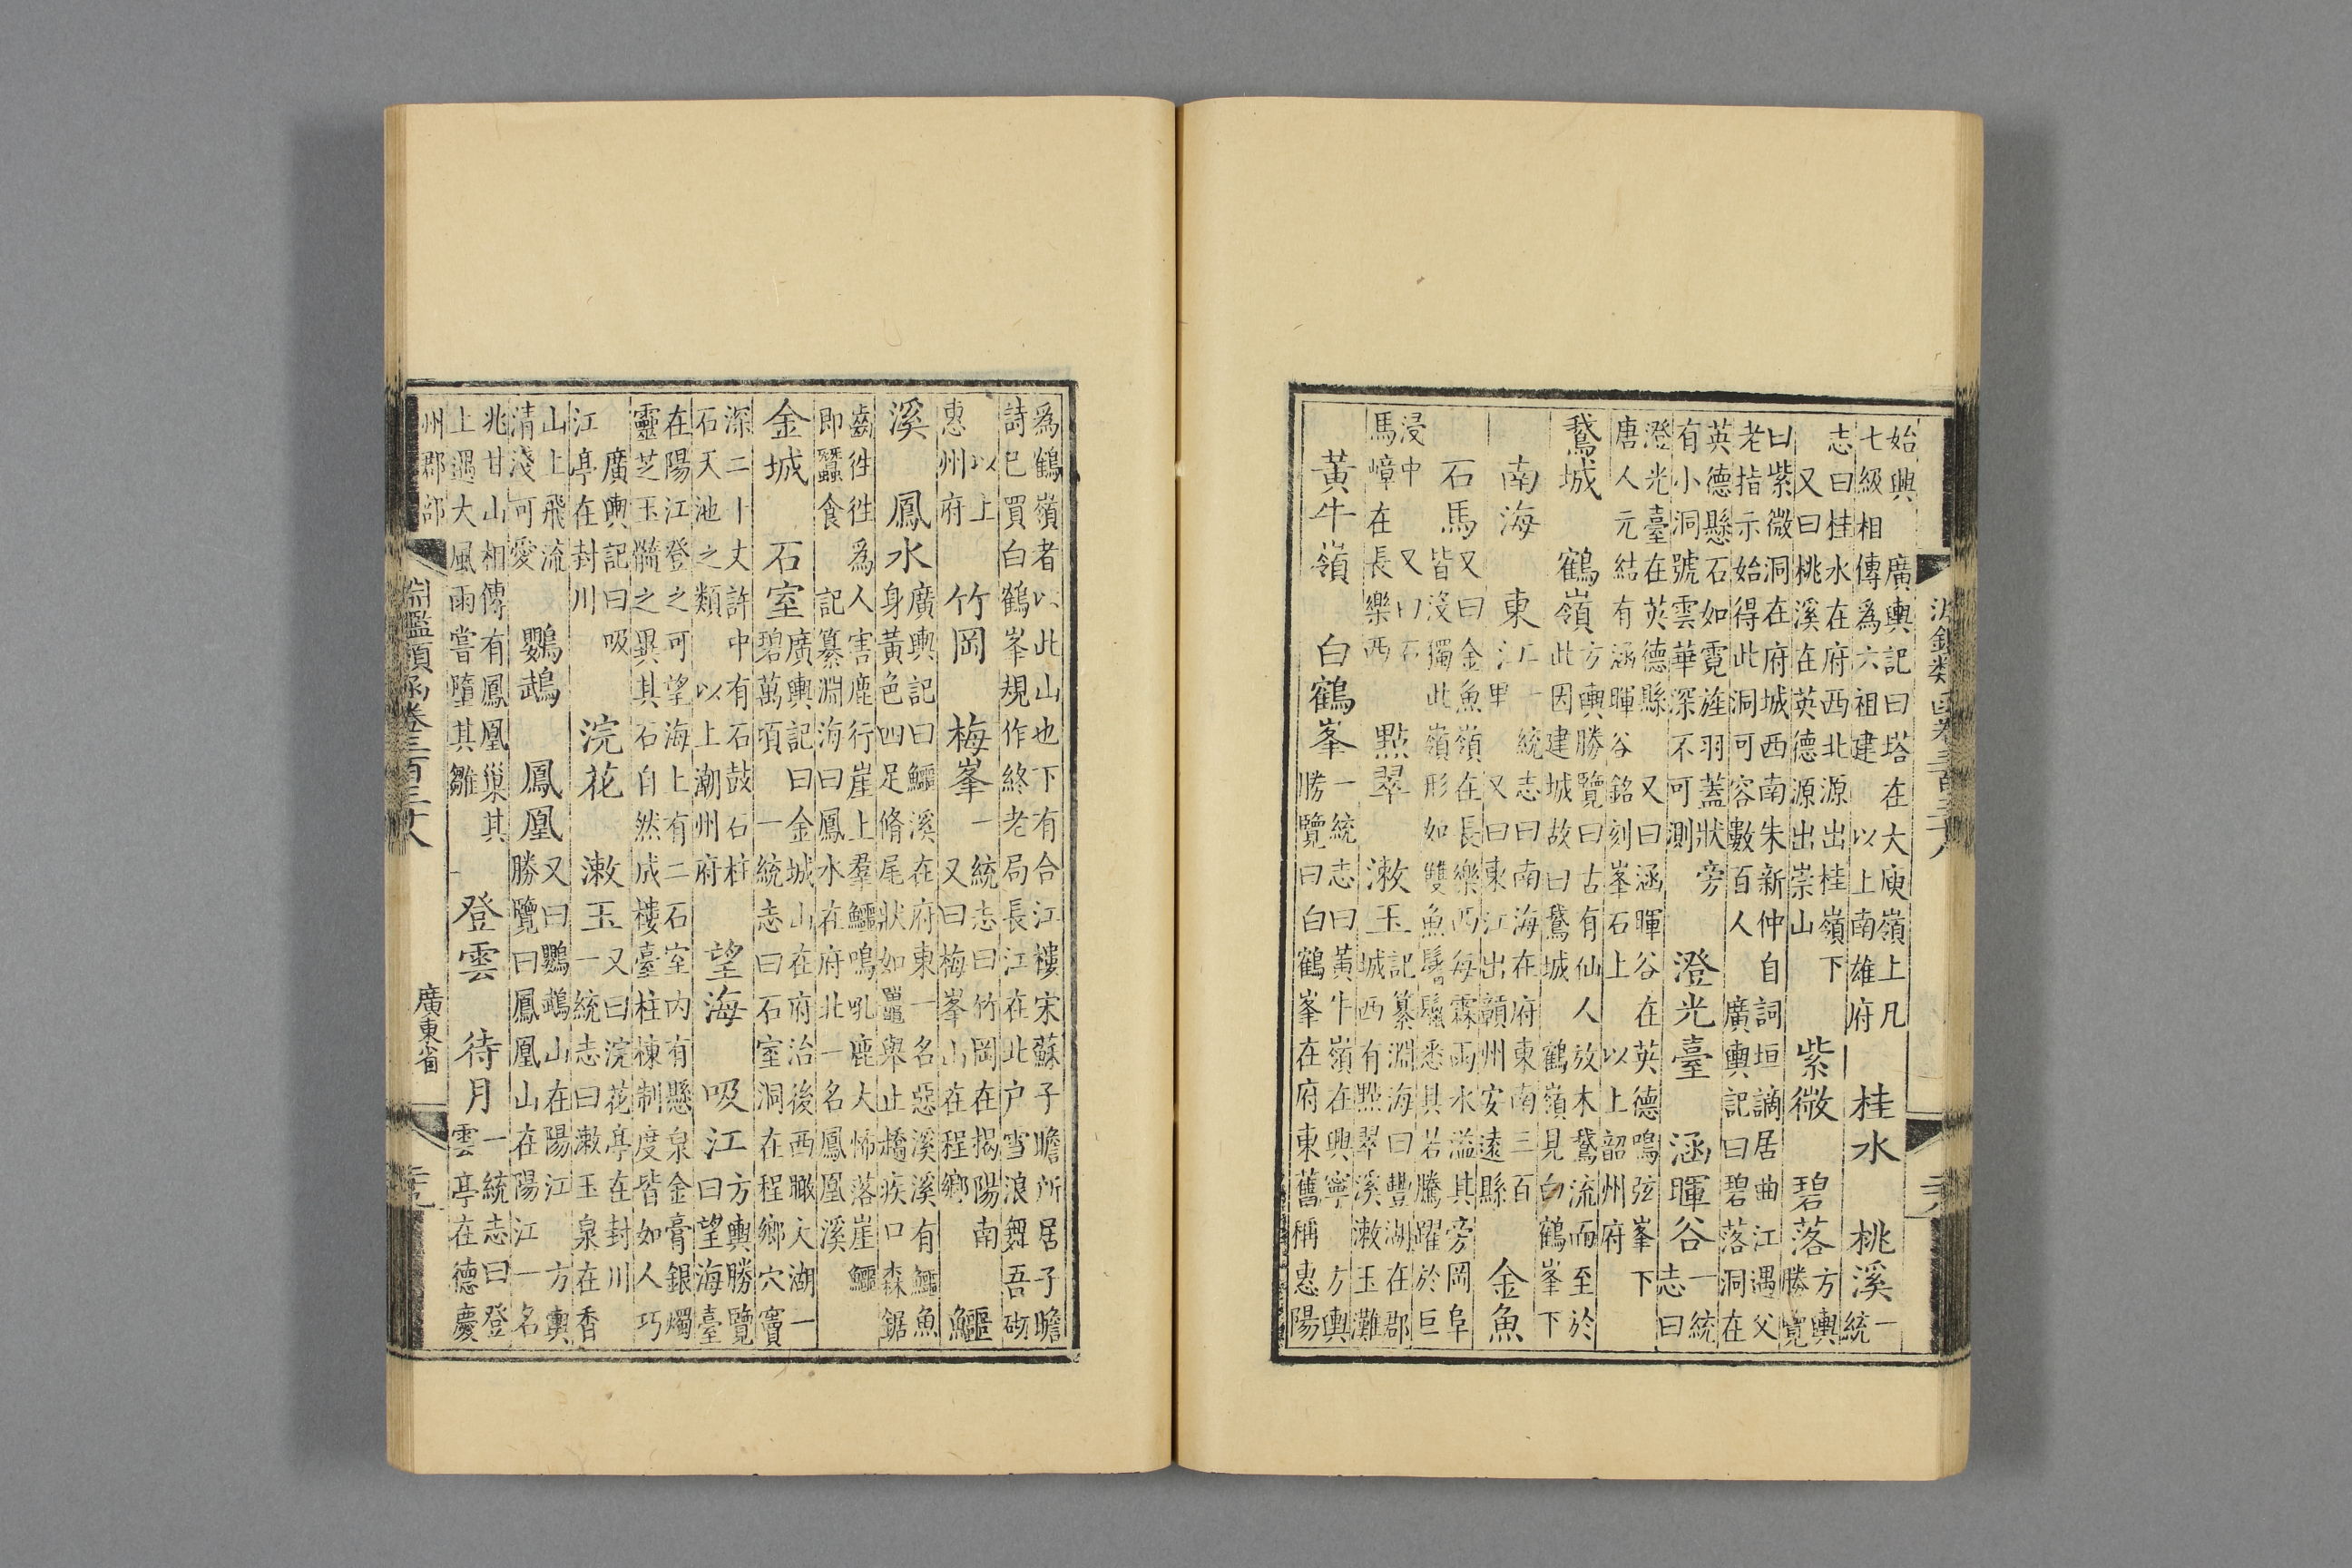 淵鑑類函卷三百三十八
始興 廣輿記曰塔在大庾嶺上凡
七級相傳爲六祖建 以上南雄府
桂水 桃溪
一統
志曰桂水在府西北源出桂嶺下
又曰桃溪在英德源出崇山
紫微 碧落
方輿
勝覽
曰紫微洞在府城西南朱新仲自詞垣謫居曲江遇父
老指示始得此洞可容數百人 廣輿記曰碧落洞在
英德懸石如霓旌羽蓋狀旁
有小洞號雲華深不可測
澄光臺 涵暉谷
一統
志曰
澄光臺在英德縣 又曰涵暉谷在英德鳴弦峯下
唐人元結有涵暉谷銘刻峯石上 以上韶州府
鵞城 鶴嶺
方輿勝覽曰古有仙人放木鵞流而至於
此因建城故曰鵞城 鶴嶺見白鶴峯下
南海 東江
一統志曰南海在府東南三百
里 又曰東江出贛州安遠縣
金魚
石馬
又曰金魚嶺在長樂西每霖雨水溢其旁岡阜
皆没獨此嶺形如雙魚鬐鬛悉具若騰躍於巨
浸中 又曰石
馬嶂在長樂西
點翠 漱玉
記纂淵海曰豐湖在郡
城西有點翠溪漱玉灘
黃牛嶺 白鶴峯
一統志曰黃牛嶺在興寧 方輿
勝覽曰白鶴峯在府東舊稱惠陽
爲鶴嶺者以此山也下有合江樓宋蘇子瞻所居子瞻
詩已買白鶴峯規作終老局長江在北户雪浪舞吾砌
以上
惠州府
竹岡 梅峯
一統志曰竹岡在揭陽南
又曰梅峯山在程鄉
鱷
溪 鳳水
廣輿記曰鱷溪在府東一名惡溪溪有鱷魚
身黃色四足脩尾狀如鼉舉止矯疾口森鋸
齒徃徃爲人害鹿行崖上羣鱷鳴吼鹿大怖落崖鱷
即蠶食 記纂淵海曰鳳水在府北一名鳳凰溪
金城 石室
廣輿記曰金城山在府治後西瞰大湖一
碧萬頃 一統志曰石室洞在程鄉穴竇
深二十丈許中有石鼓石柱
石天池之類 以上潮州府
望海 吸江
方輿勝覽
曰望海臺
在陽江登之可望海上有二石室内有懸泉金膏銀燭
靈芝玉髓之異其石自然成樓臺柱棟制度皆如人巧
廣輿記曰吸
江亭在封川
浣花 漱玉
又曰浣花亭在封川
一統志曰漱玉泉在香
山上飛流
清淺可愛
鸚鵡 鳳凰
又曰鸚鵡山在陽江 方輿
勝覽曰鳳凰山在陽江一名
兆甘山相傳有鳳凰巢其
上遇大風雨嘗墮其雛
登雲 待月
一統志曰登
雲亭在德慶
州郡部
淵鑑類函卷三百三十八
廣東省